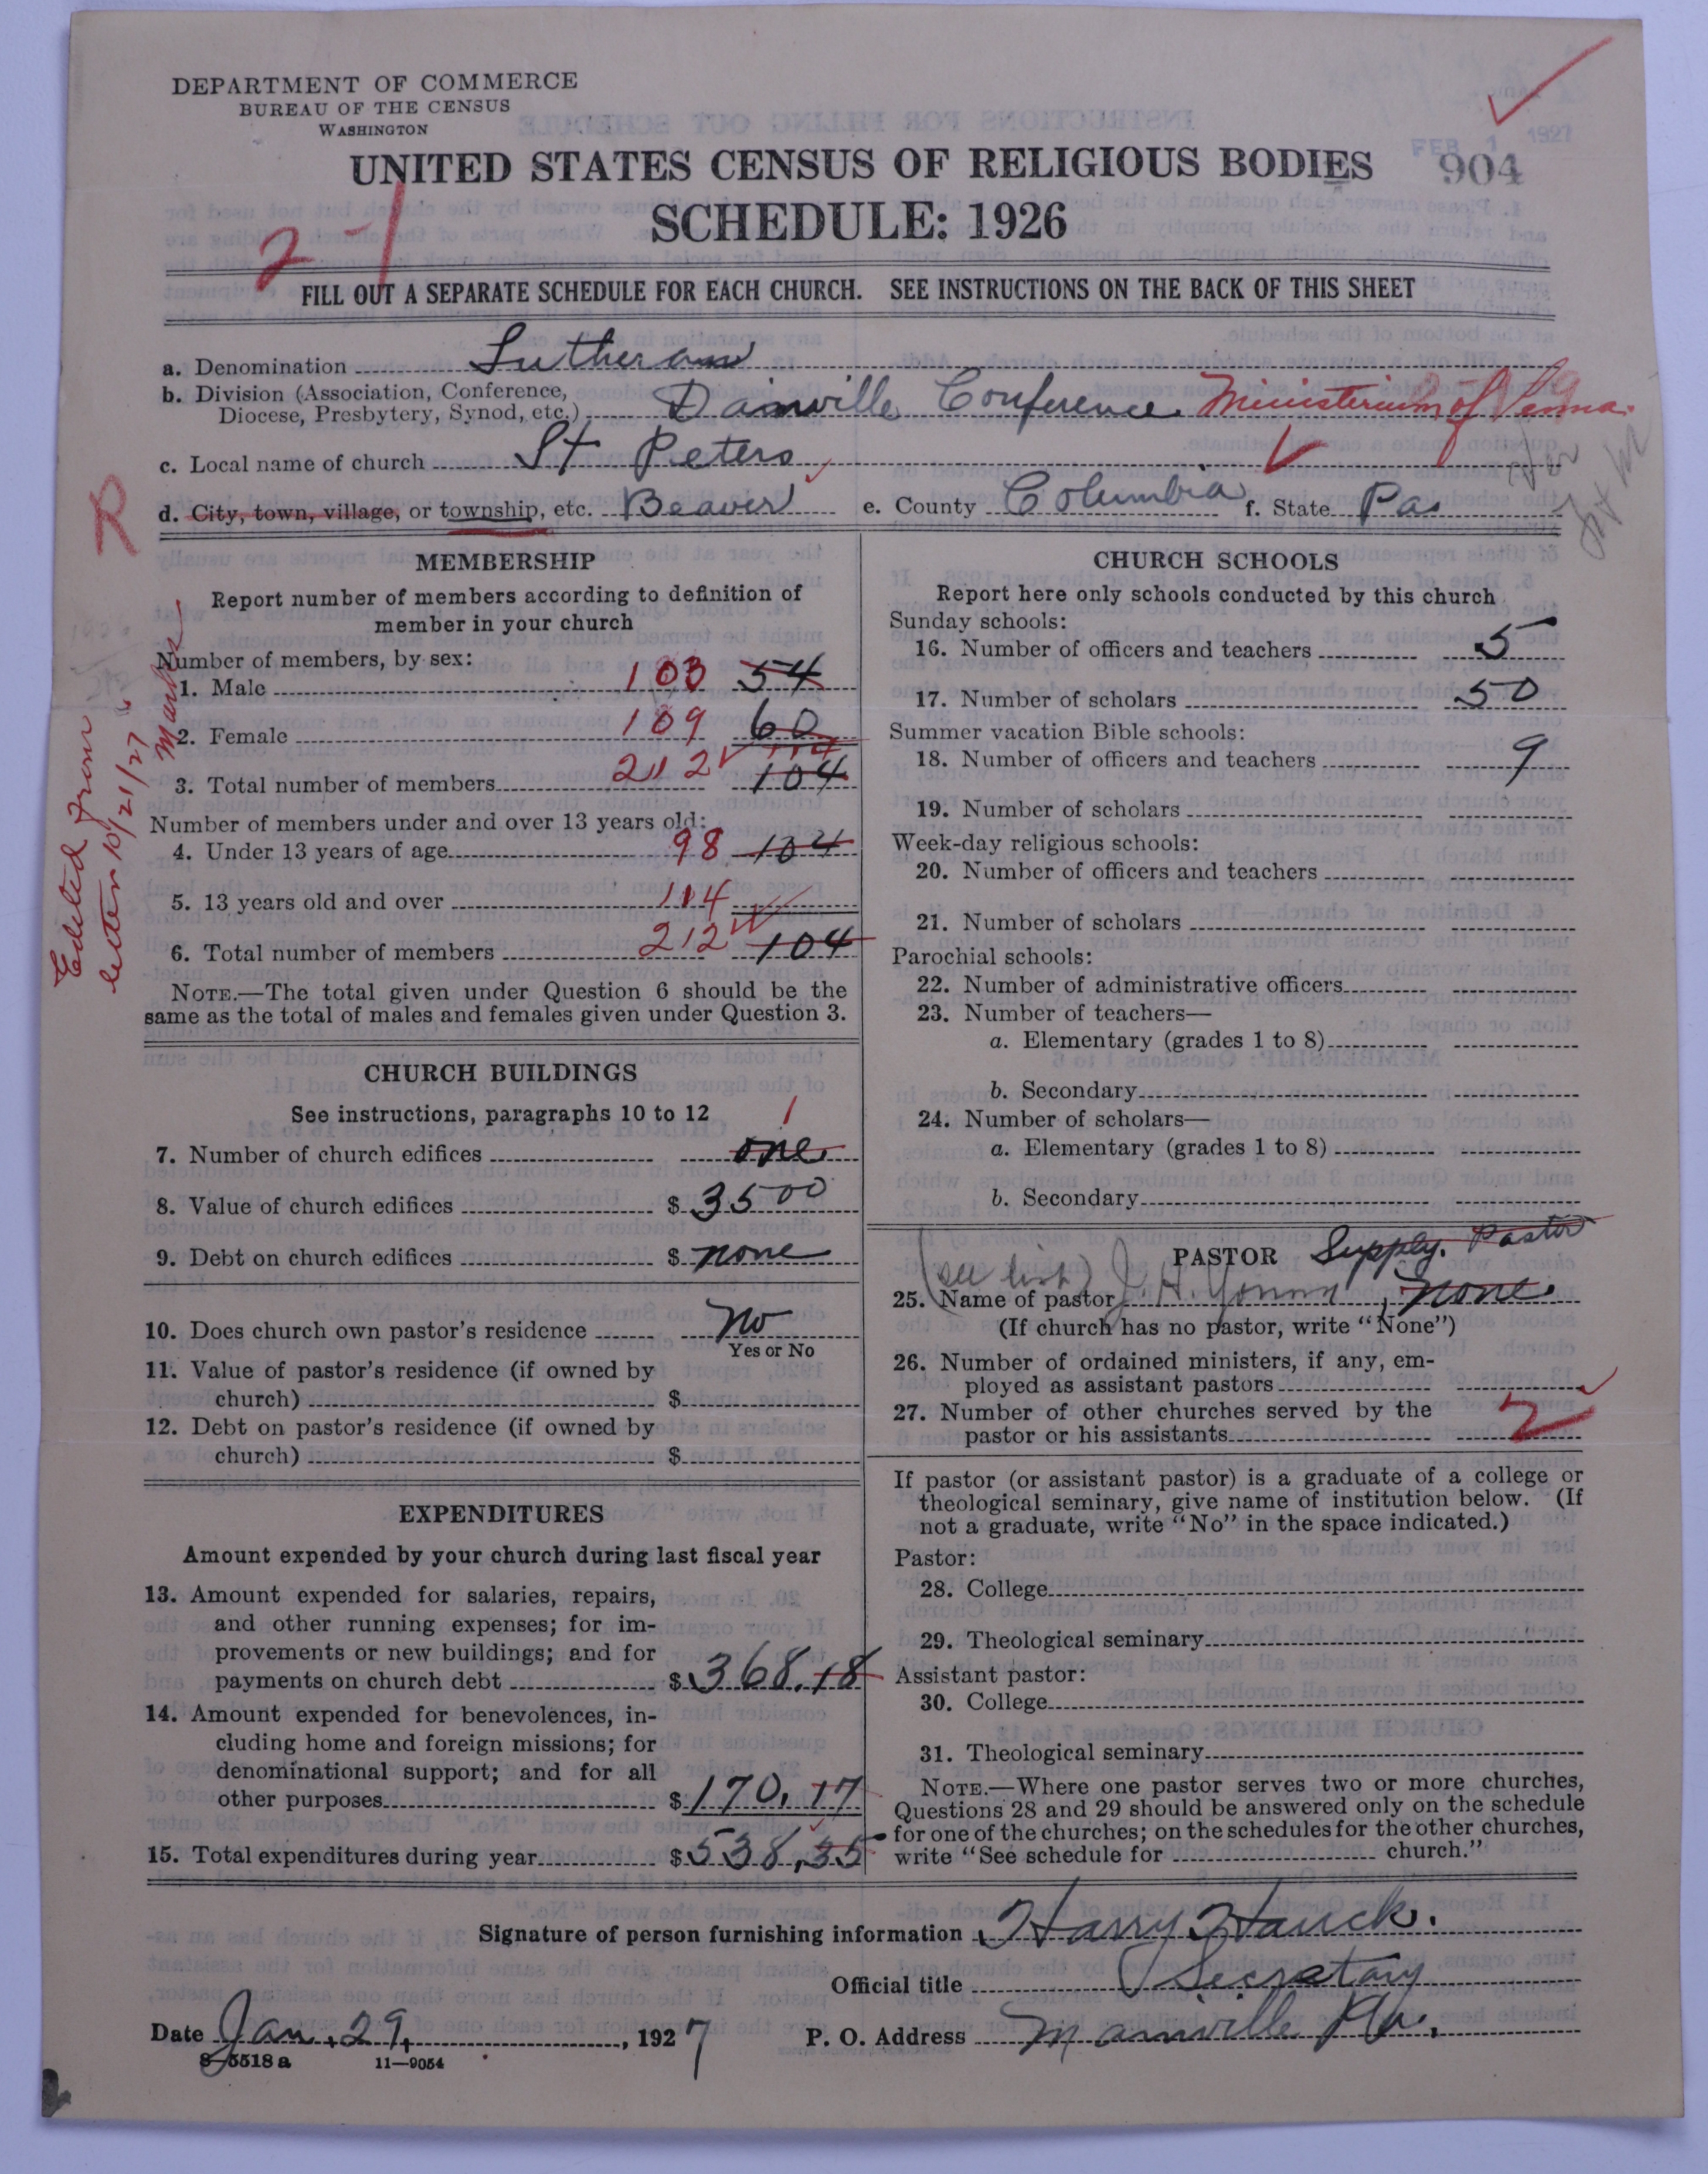 DEPARTMENT OF COMMERCE
BUREAU OF THE CENSUS
WASHINGTON
FEB 1 1927
904
UNITED STATES CENSUS OF RELIGIOUS BODIES
SCHEDULE: 1926
2-1
FILL OUT A SEPARATE SCHEDULE FOR EACH CHURCH. SEE INSTRUCTIONS ON THE BACK OF THIS SHEET
a. Denomination Lutheran
b. Division (Association, Conference,
Diocese, Presbytery, Synod, etc.) Danville Conference Ministerium of Penna.
c. Local name of church St Peters
d. City, town, village, or township, etc. Beaver e. County Columbia f. State Pa
R
Edited from
letter 10/21/27
MEMBERSHIP
Report number of members according to definition of
member in your church
Number of members, by sex:
1. Male 103 54
2. Female 109 60
114
3. Total number of members 212 104
Number of members under and over 13 years old:
4. Under 13 years of age 98 104
5. 13 years old and over 114
6. Total number of members 212 104
NOTE.—The total given under Question 6 should be the
same as the total of males and females given under Question 3.
CHURCH BUILDINGS
See instructions, paragraphs 10 to 12
7. Number of church edifices 1 one
8. Value of church edifices $ 3500
9. Debt on church edifices $ none
10. Does church own pastor's residence No
Yes or No
11. Value of pastor's residence (if owned by
church) $
12. Debt on pastor's residence (if owned by
church) $
EXPENDITURES
Amount expended by your church during last fiscal year
13. Amount expended for salaries, repairs,
and other running expenses; for im-
provements or new buildings; and for
payments on church debt $ 368.18
14. Amount expended for benevolences, in-
cluding home and foreign missions; for
denominational support; and for all
other purposes $ 170.17
15. Total expenditures during year $ 538.35
CHURCH SCHOOLS
Report here only schools conducted by this church
Sunday schools:
16. Number of officers and teachers 5
17. Number of scholars 50
Summer vacation Bible schools:
18. Number of officers and teachers 9
19. Number of scholars
Week-day religious schools:
20. Number of officers and teachers
21. Number of scholars
Parochial schools:
22. Number of administrative officers
23. Number of teachers—
a. Elementary (grades 1 to 8)
b. Secondary
24. Number of scholars—
a. Elementary (grades 1 to 8)
b. Secondary
PASTOR Supply. Pastor
(see list)
25. Name of pastor J. H. Young, none.
(If church has no pastor, write "None")
26. Number of ordained ministers, if any, em-
ployed as assistant pastors
27. Number of other churches served by the
pastor or his assistants 2
If pastor (or assistant pastor) is a graduate of a college or
theological seminary, give name of institution below. (If
not a graduate, write "No" in the space indicated.)
Pastor:
28. College
29. Theological seminary
Assistant pastor:
30. College
31. Theological seminary
NOTE.—Where one pastor serves two or more churches,
Questions 28 and 29 should be answered only on the schedule
for one of the churches; on the schedules for the other churches,
write "See schedule for church."
Signature of person furnishing information Harry Hauck.
Official title Secretary
Date Jan. 29, 1927 P. O. Address Mainville Pa.
8-5518 a 11—9054